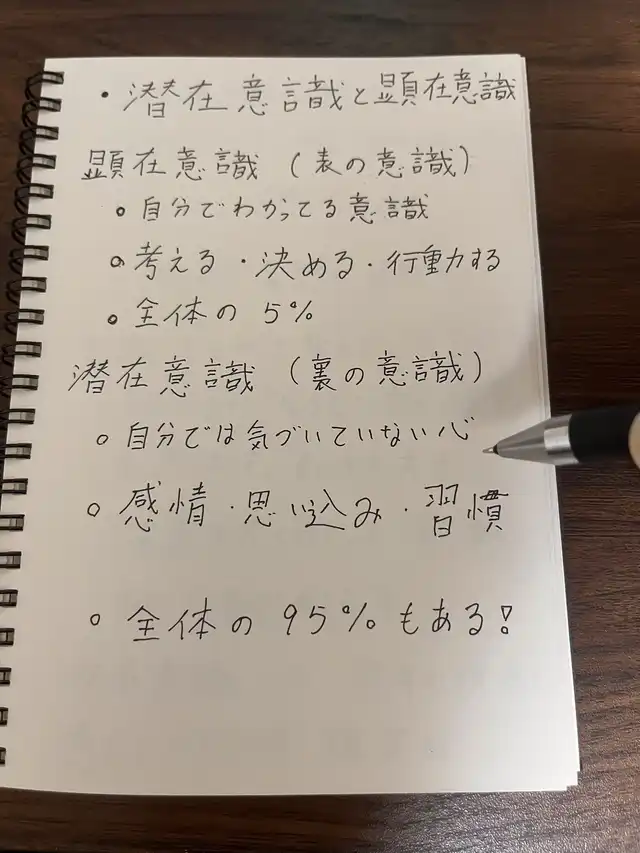 ・潜在意識と顕在意識
顕在意識（表の意識）
○ 自分でわかってる意識
○ 考える・決める・行動する
○ 全体の 5%
潜在意識（裏の意識）
○ 自分では気づいていない心
○ 感情・思い込み・習慣
○ 全体の 95%もある!